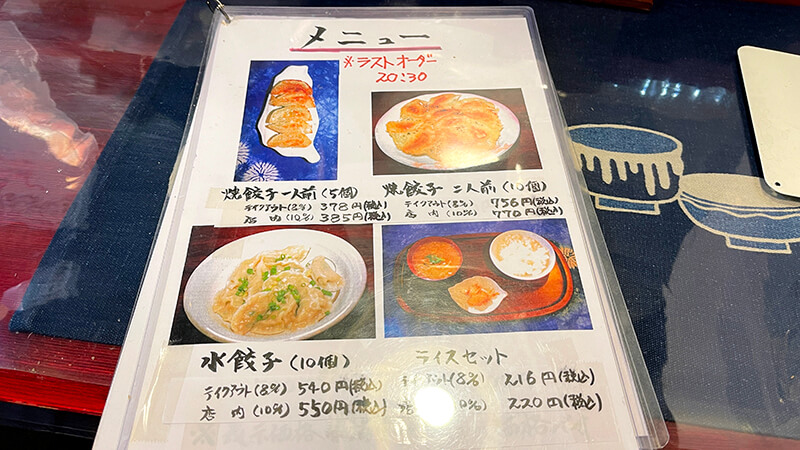 メニュー
※ラストオーダー
20:30
焼餃子一人前(5個)
テイクアウト(8%) 378円(税込)
店内(10%) 385円(税込)
焼餃子 二人前(10個)
テイクアウト(8%) 756円(税込)
店内(10%) 770円(税込)
水餃子(10個)
テイクアウト(8%) 540円(税込)
店内(10%) 550円(税込)
ライスセット
テイクアウト(8%) 216円(税込)
店 10%) 220円(税込)